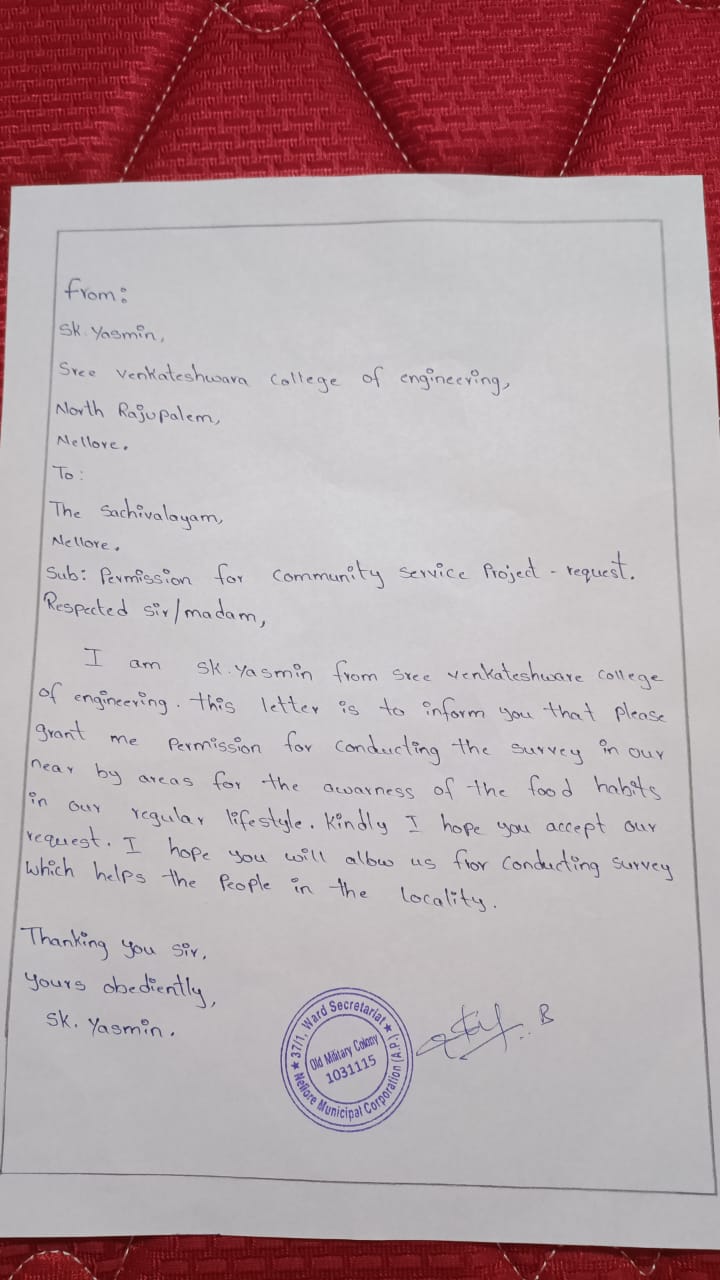 from:
SK. Yasmin,
Sree venkateshwara college of engineering,
North Rajupalem,
Nellore.
To:
The Sachivalayam,
Nellore.
Sub: Permission for community service Project - request.
Respected sir/madam,
I am SK. Yasmin from sree venkateshware college
of engineering. this letter is to inform you that please
grant me Permission for conducting the survey in our
near by areas for the awarness of the food habits
in our regular lifestyle. kindly I hope you accept our
request. I hope you will allow us for conducting survey
which helps the People in the locality.
Thanking you sir,
yours obediently,
SK. Yasmin.
★ 37/1, Ward Secretariat ★
Old Military Colony
1031115
Nellore Municipal Corporation (A.P.)
B